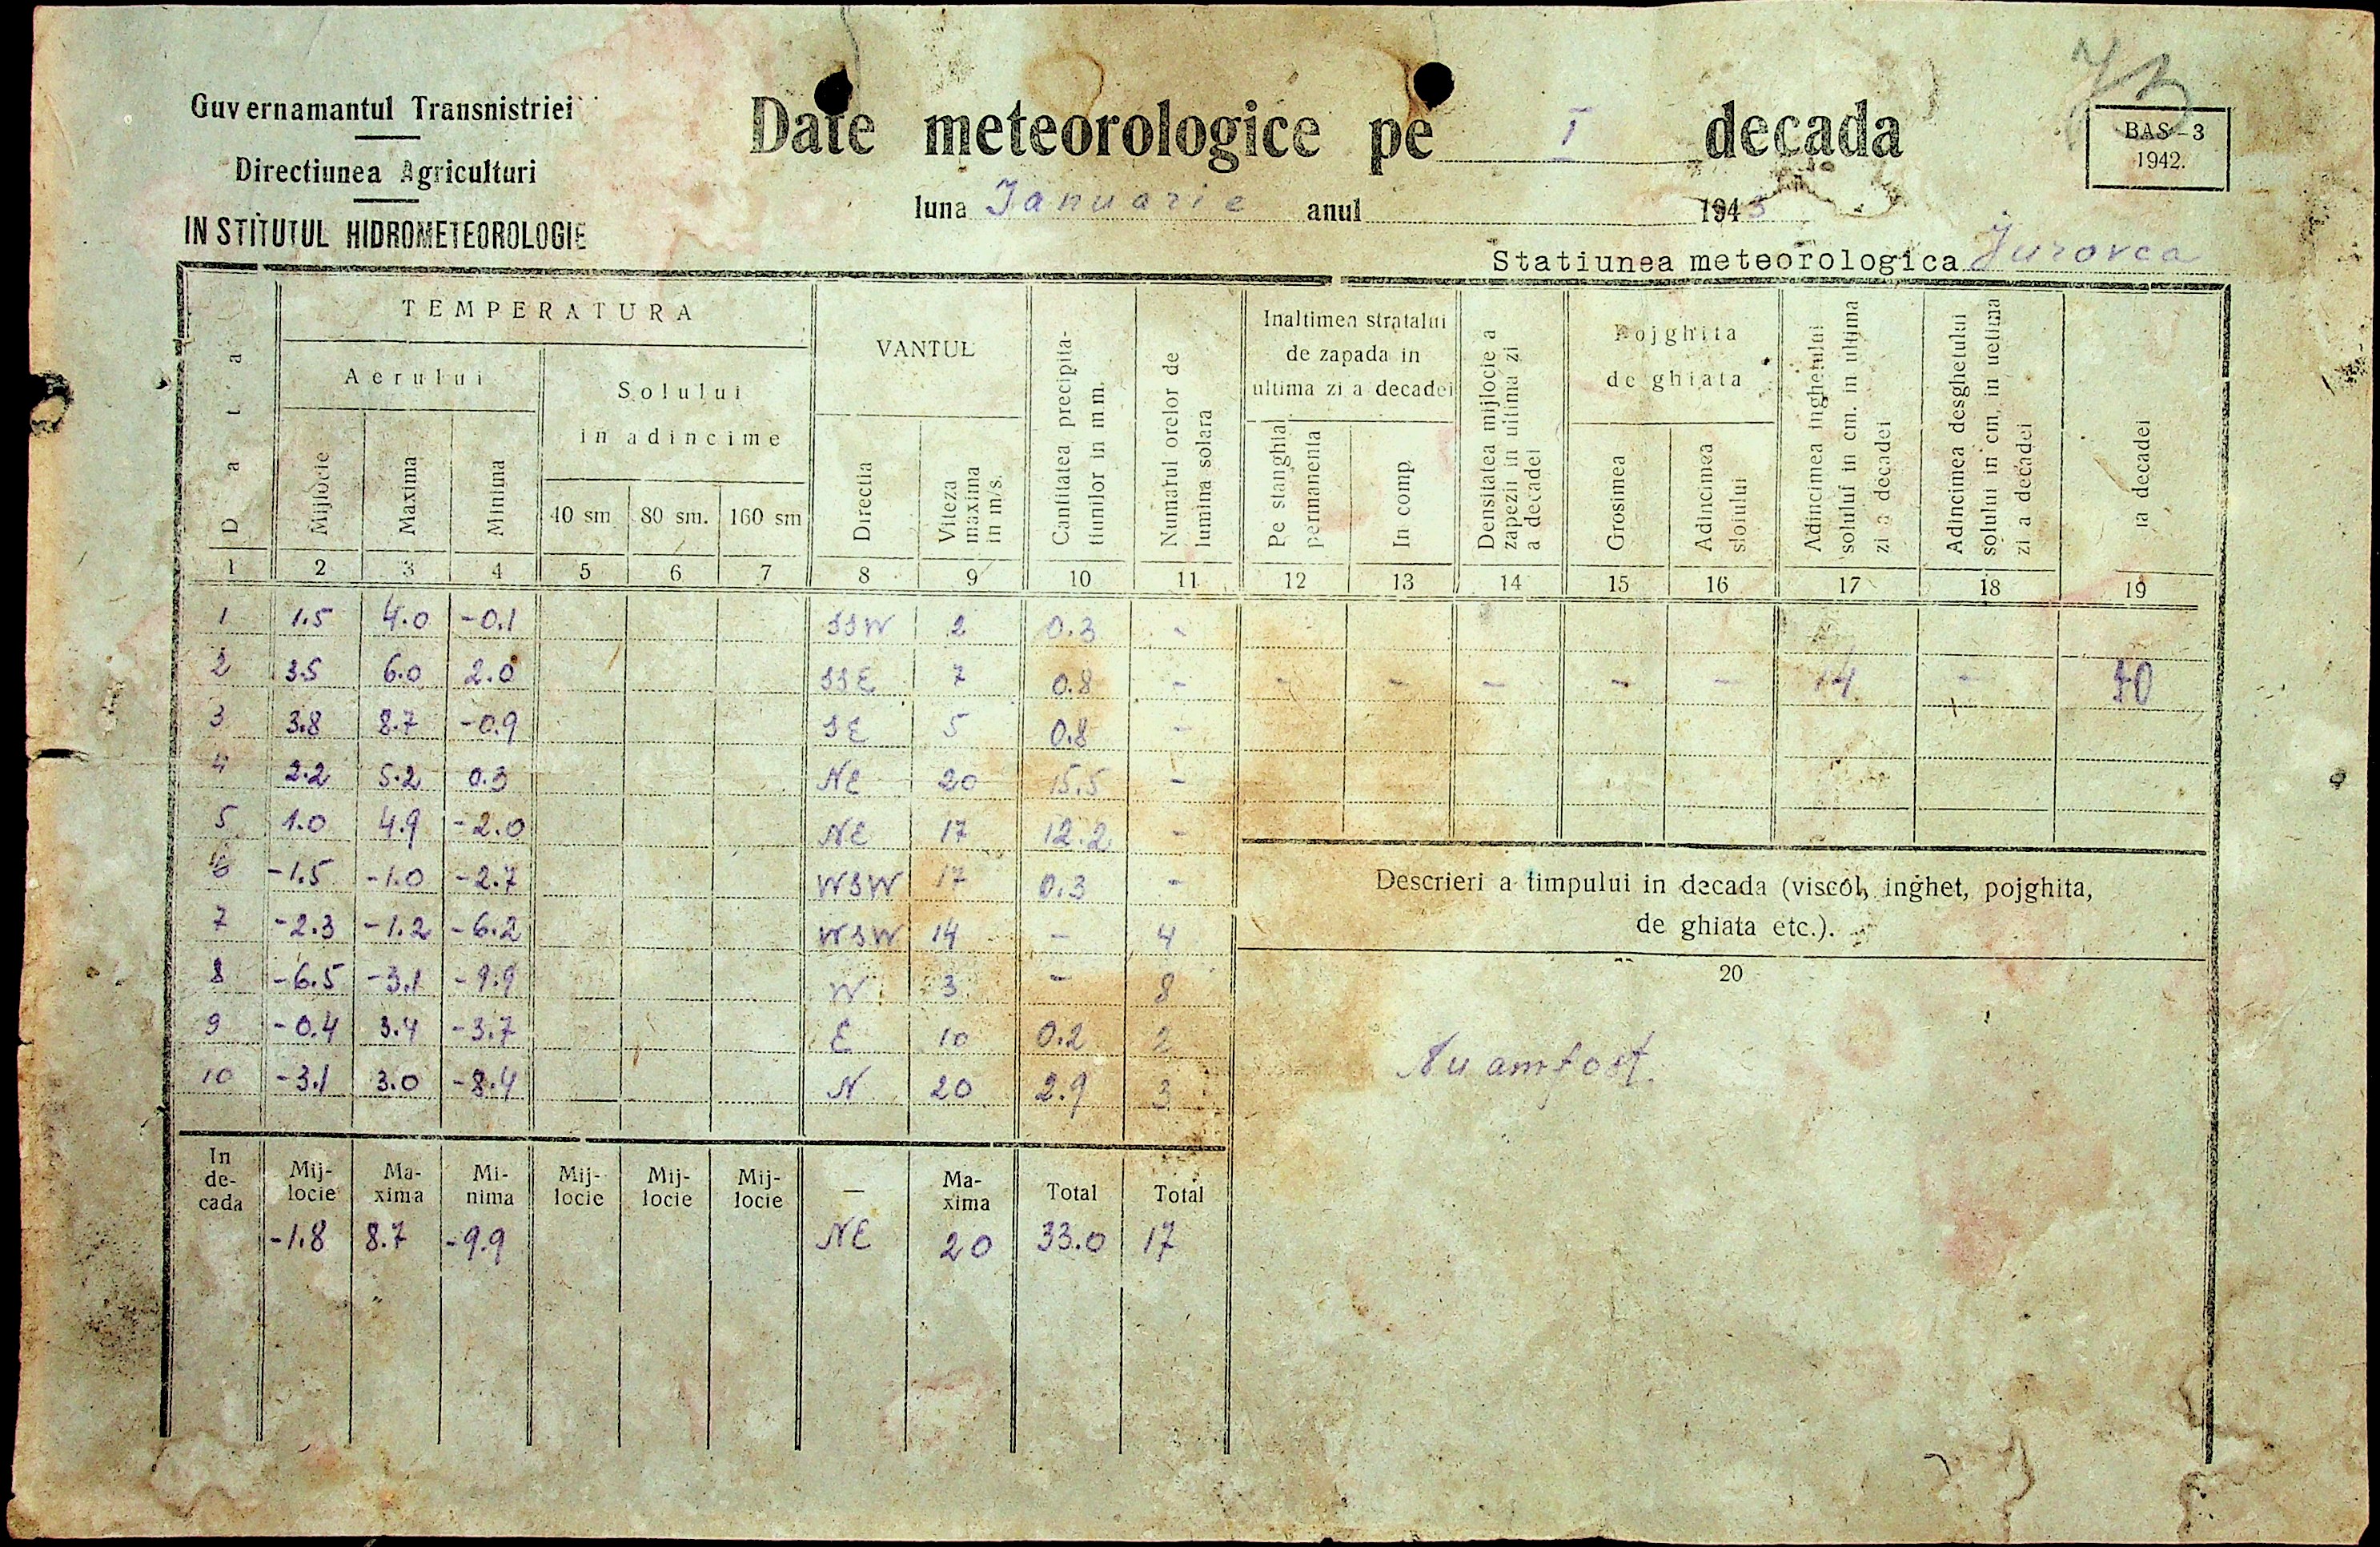 73
Guvernamantul Transnistriei
Directiunea Agriculturi
INSTITUTUL HIDROMETEOROLOGIE
Date meteorologice pe I decada
luna Ianuarie anul 1943
BAS-3
1942.
Statiunea meteorologica Jurovca
Data
TEMPERATURA
Aerului
Mijlocie
Maxima
Minima
Solului
in adincime
40 sm 80 sm. 160 sm
VANTUL
Directia
Viteza
maxima
in m/s.
Cantitatea precipita-
tiunilor in mm.
Numarul orelor de
lumina solara
Inaltimea stratalui
de zapada in
ultima zi a decadei
Pe stanghia
permanenta
In comp
Densitatea mijlocie a
zapezii in ultima zi
a decadei
Pojghita
de ghiata
Grosimea
Adincimea
sloiului
Adincimea inghetului
solului in cm. in ultima
zi a decadei
Adincimea desghetului
solului in cm. in ueltima
zi a decadei
la decadei
1 2 3 4 5 6 7 8 9 10 11 12 13 14 15 16 17 18 19
1 1.5 4.0 -0.1 SSW 2 0.3 -
2 3.5 6.0 2.0 SSE 7 0.8 - - - - - - 14 - 10
3 3.8 8.7 -0.9 SE 5 0.8 -
4 2.2 5.2 0.3 NE 20 15.5 -
5 1.0 4.9 -2.0 NE 17 12.2 -
6 -1.5 -1.0 -2.7 WSW 17 0.3 -
7 -2.3 -1.2 -6.2 WSW 14 - 4
8 -6.5 -3.1 -9.9 W 3 - 8
9 -0.4 3.4 -3.7 E 10 0.2 2
10 -3.1 3.0 -8.4 N 20 2.9 3
Descrieri a timpului in decada (viscol, inghet, pojghita,
de ghiata etc.).
20
Nu am fost.
In
de-
cada
Mij-
locie
Ma-
xima
Mi-
nima
Mij-
locie
Mij-
locie
Mij-
locie
—
Ma-
xima
Total
Total
-1.8 8.7 -9.9 NE 20 33.0 17